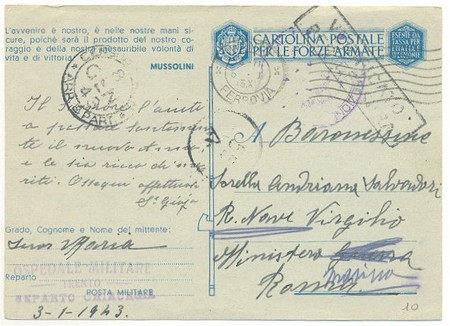 L'avvenire è nostro, è nelle nostre mani si-
cure, poichè sarà il prodotto del nostro co-
raggio e della nostra inesauribile volontà di
vita e di vittoria.
MUSSOLINI
CARTOLINA POSTALE
PER LE FORZE ARMATE
FERROVIA
Il Signore l'aiuti
a passare santamente
il nuovo Anno
e le sia ricco di me-
riti. Ossequi affettuosi
Grado, Cognome e Nome del mittente:
Suor Maria
Reparto
OSPEDALE MILITARE
TRENTO
REPARTO CHIRURGIA
POSTA MILITARE
3-1-1943
A Baronessina
Sorella Andriana Salvadori
R. Nave Virgilio
Ministero Guerra
Marina
Roma
10